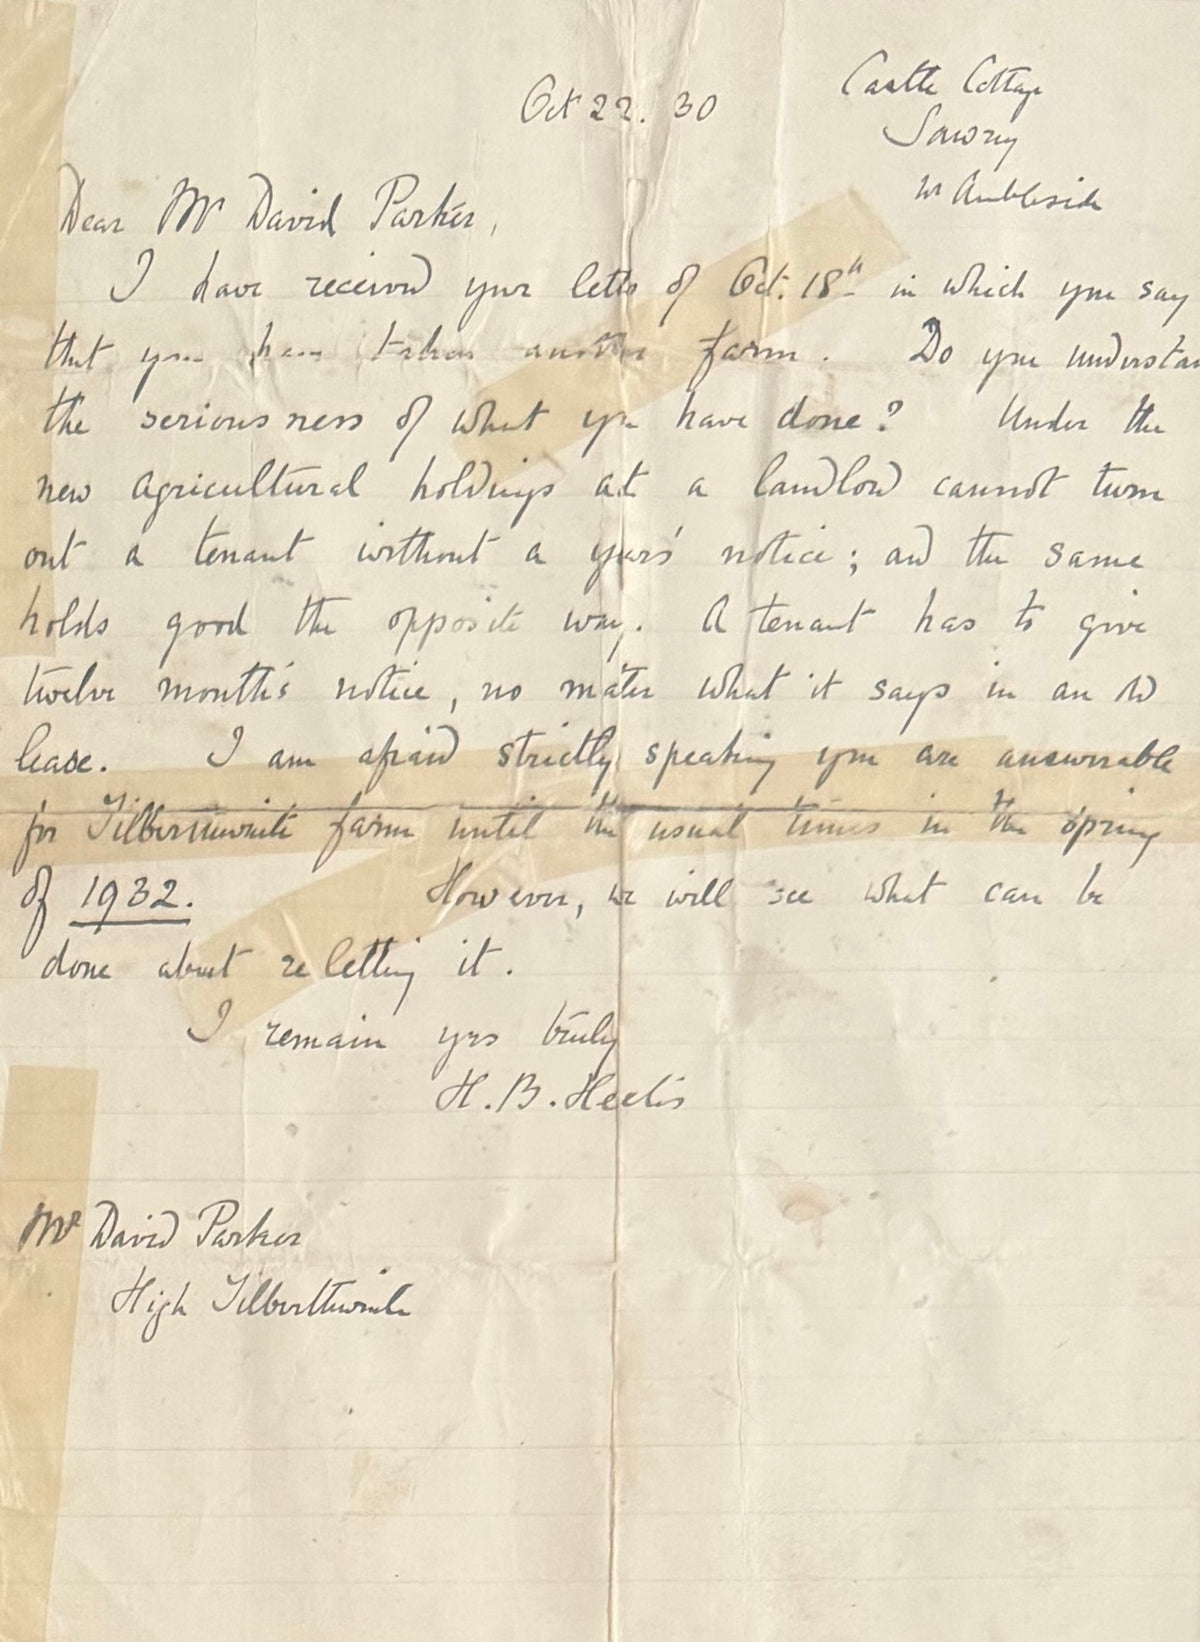 Oct 22. 30
Castle Cottage
Sawrey
nr Ambleside
Dear Mr David Parker,
I have received your letter of Oct. 18th in which you say
that you have taken another farm. Do you understan
the seriousness of what you have done? Under the
new agricultural holdings act a landlord cannot turn
out a tenant without a years' notice; and the same
holds good the opposite way. A tenant has to give
twelve month's notice, no matter what it says in an old
lease. I am afraid strictly speaking you are answerable
for Tilberthwaite farm until the usual times in the spring
of 1932. However, we will see what can be
done about reletting it.
I remain yrs truly
H. B. Heelis
Mr David Parker
High Tilberthwaite